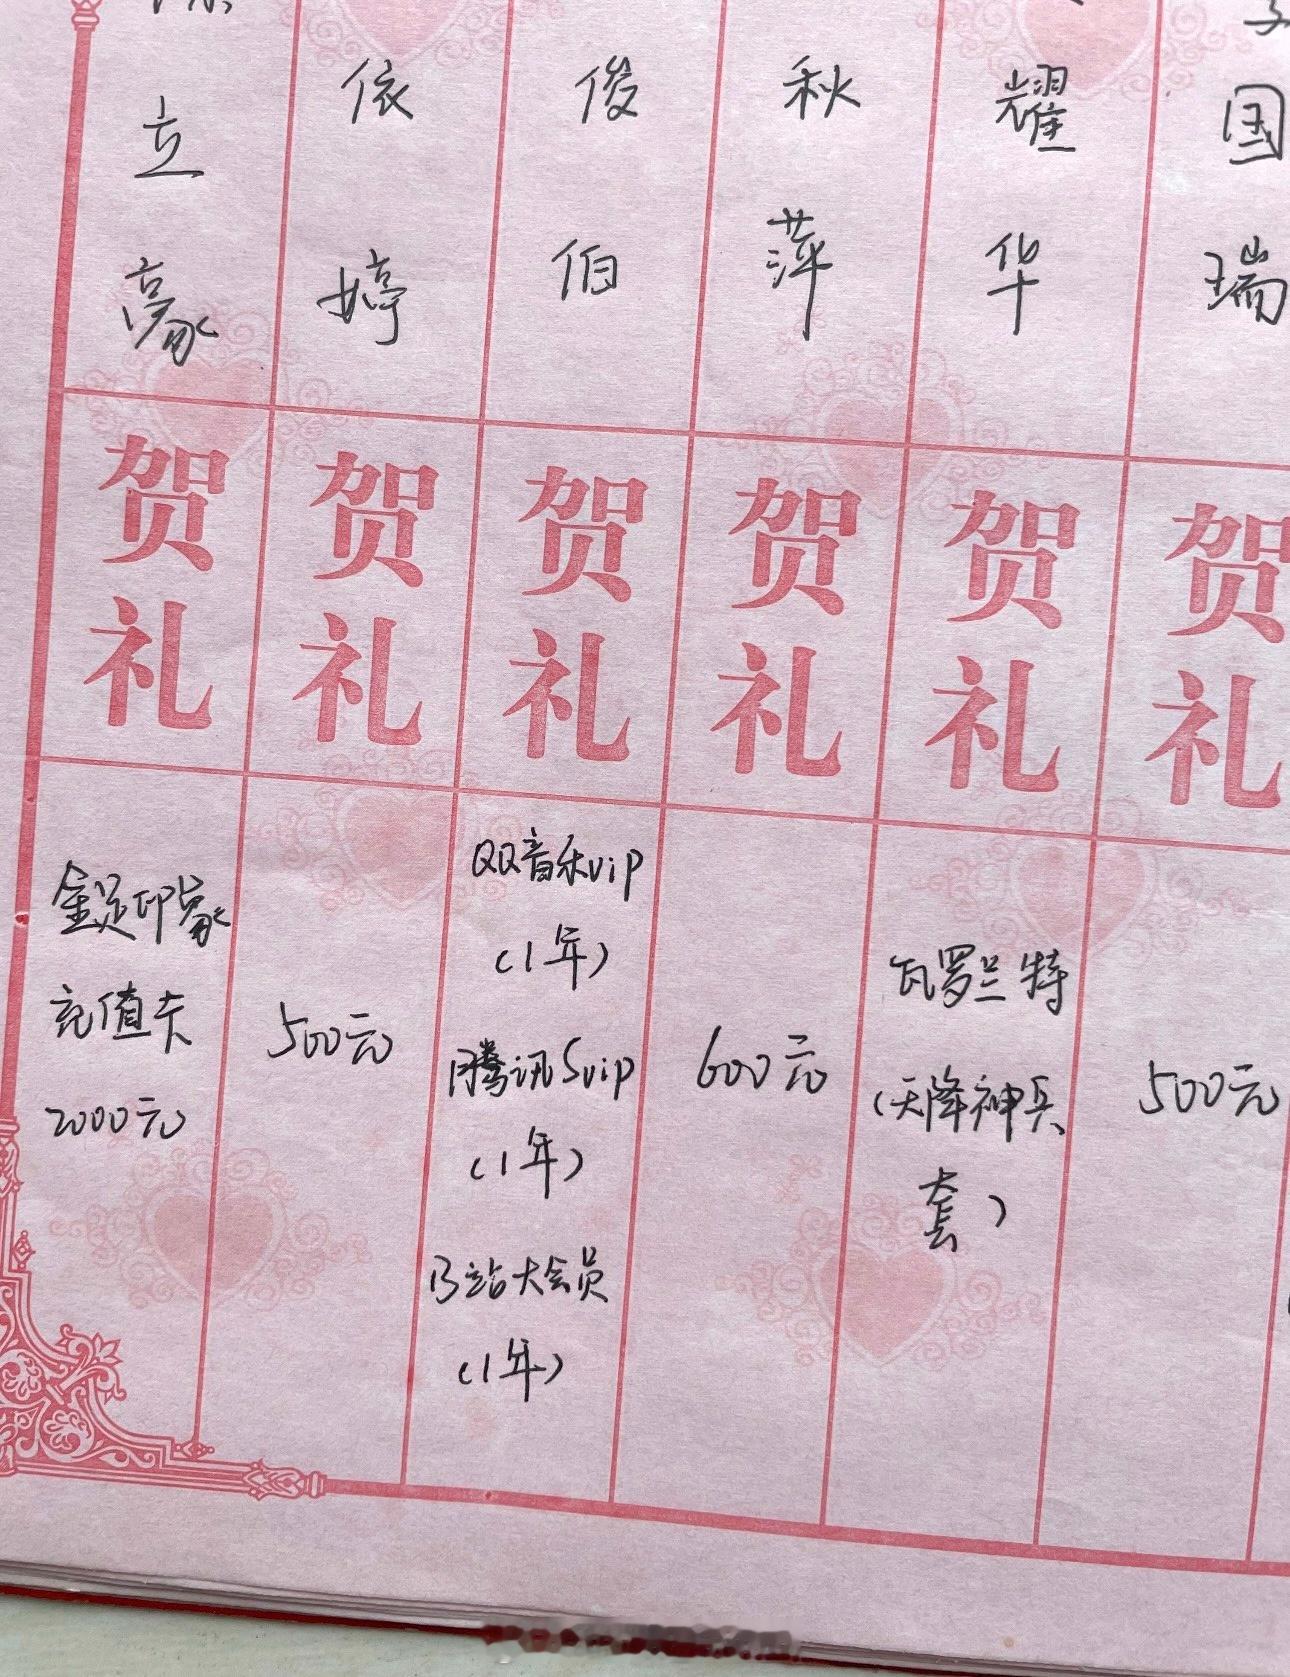 立
豪
贺
礼
金足印象
充值卡
2000元
依
婷
贺
礼
500元
俊
伯
贺
礼
QQ音乐vip
(1年)
腾讯Svip
(1年)
B站大会员
(1年)
秋
萍
贺
礼
600元
耀
华
贺
礼
瓦罗兰特
(天降神兵
套)
国
瑞
贺
礼
500元